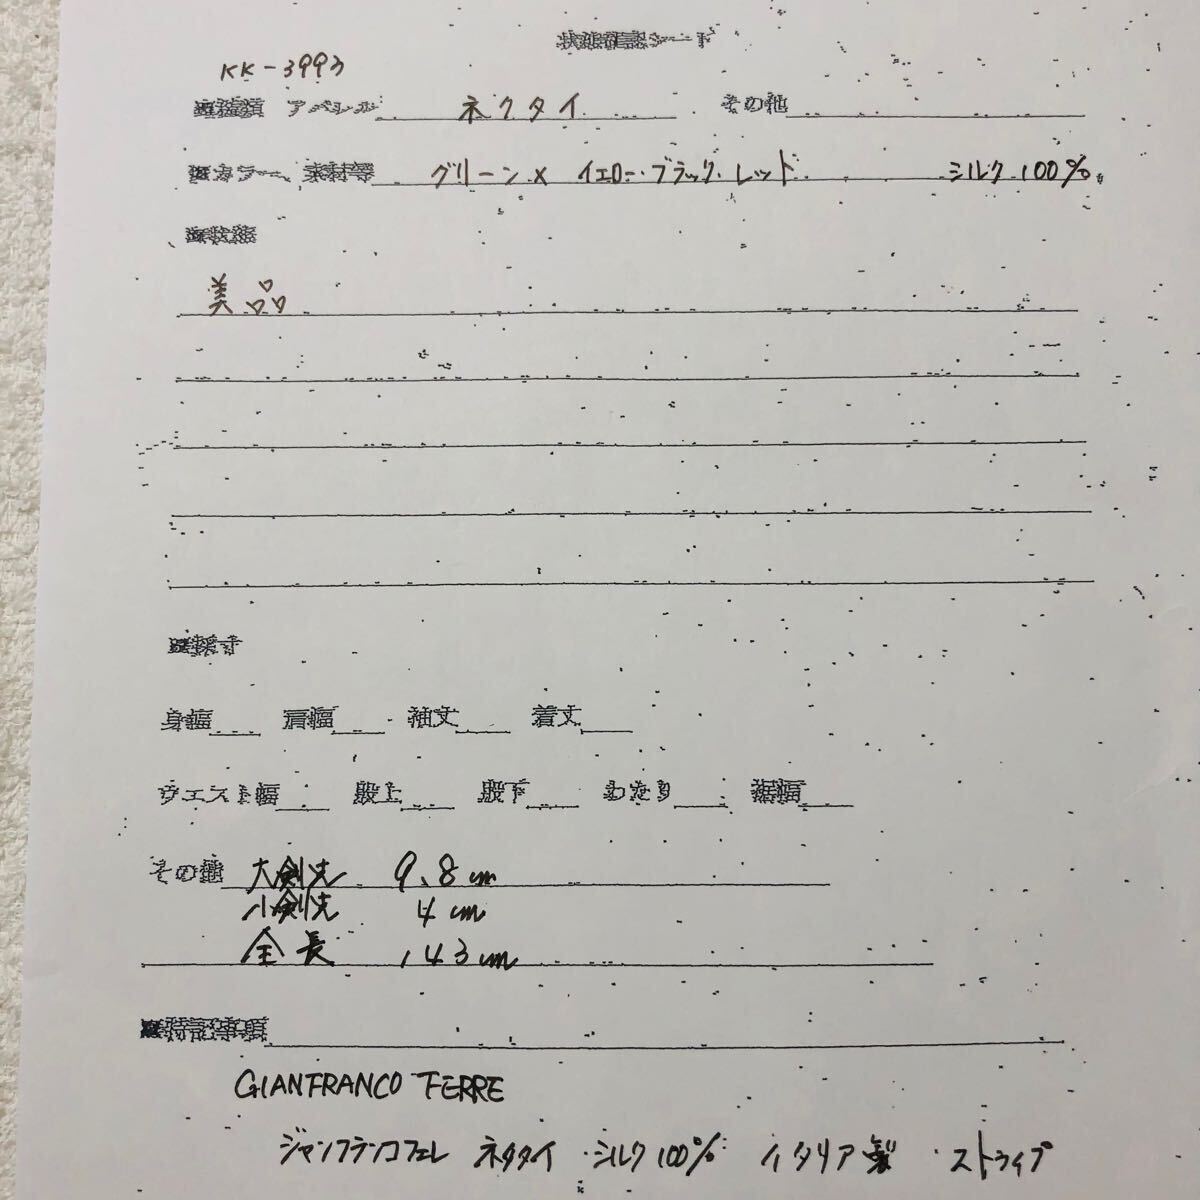 状態確認シート
KK-3993
■種類 アパレル ネクタイ その他
■カラー、素材等 グリーン× イエロー・ブラック・レッド シルク100%
■状態
美品
■採寸
身幅 肩幅 袖丈 着丈
ウエスト幅 股上 股下 わたり 裾幅
その他 大剣先 9.8cm
小剣先 4cm
全長 143cm
■特記事項
GIANFRANCO FERRE
ジャンフランコフェレ ネクタイ ・シルク100% イタリア製 ・ストライプ